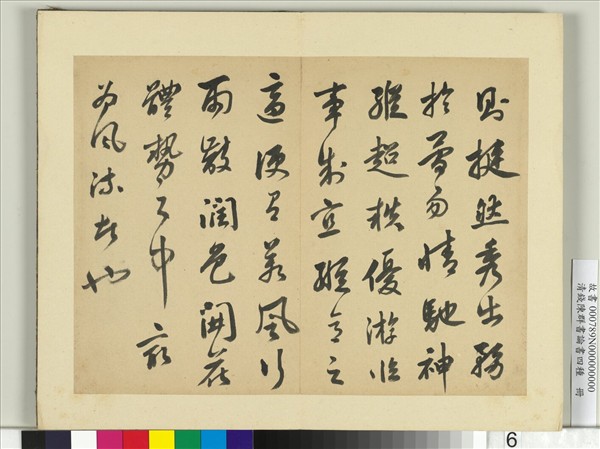 則挺然秀出務
於簡易情馳神
縱超秩優游臨
事制宜縱意之
適便有若風行
雨散潤色開花
體勢之中最
為風流者也
故書 000789N000000000
清錢陳群書論書四種 冊
6